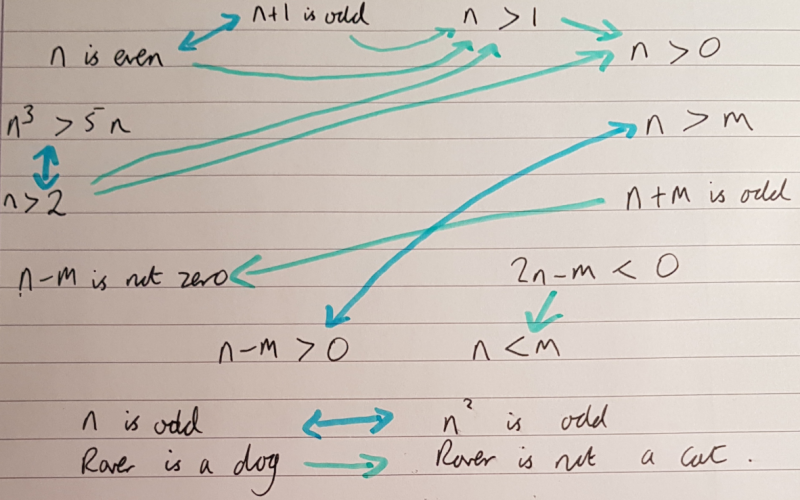 n+1 is odd n > 1
n is even n > 0
n³ > 5n n > m
n > 2 n+m is odd
n-m is not zero 2n-m < 0
n-m > 0 n < m
n is odd n² is odd
Rover is a dog Rover is not a cat.